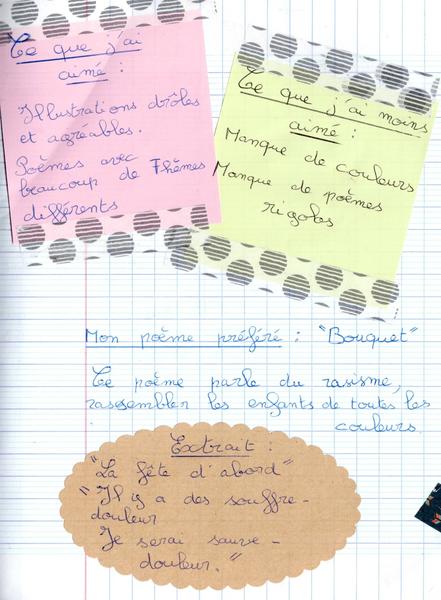 Ce que j'ai
aimé :
Illustrations drôles
et agréables.
Poèmes avec
beaucoup de Thèmes
différents
Ce que j'ai moins
aimé :
Manque de couleurs
Manque de poèmes
rigolos
Mon poème préféré : "Bouquet"
Ce poème parle du rasisme,
rassembler les enfants de toutes les
couleurs
Extrait :
"La fête d'abord"
"Il y a des souffre-
douleur
Je serai sauve-
douleur."